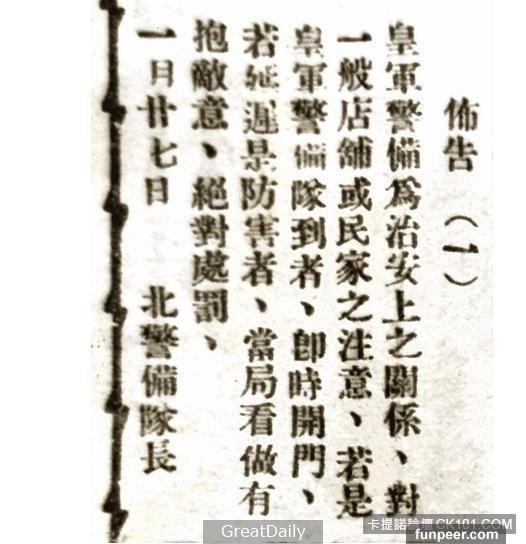 佈告（一）
皇軍警備爲治安上之關係、對
一般店舖或民家之注意、若是
皇軍警備隊到者、卽時開門、
若延遲是防害者、當局看做有
抱敵意、絕對處罰、
一日廿七日　北警備隊長
GreatDaily
卡提諾論壇 CK101.COM
funpeer.com